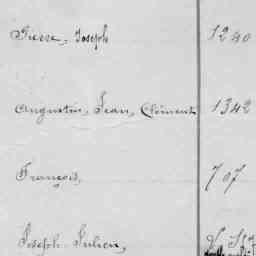 Pierre, Joseph 1240
Augustin, Jean, Clément 1342
François, 707
Joseph Julien,